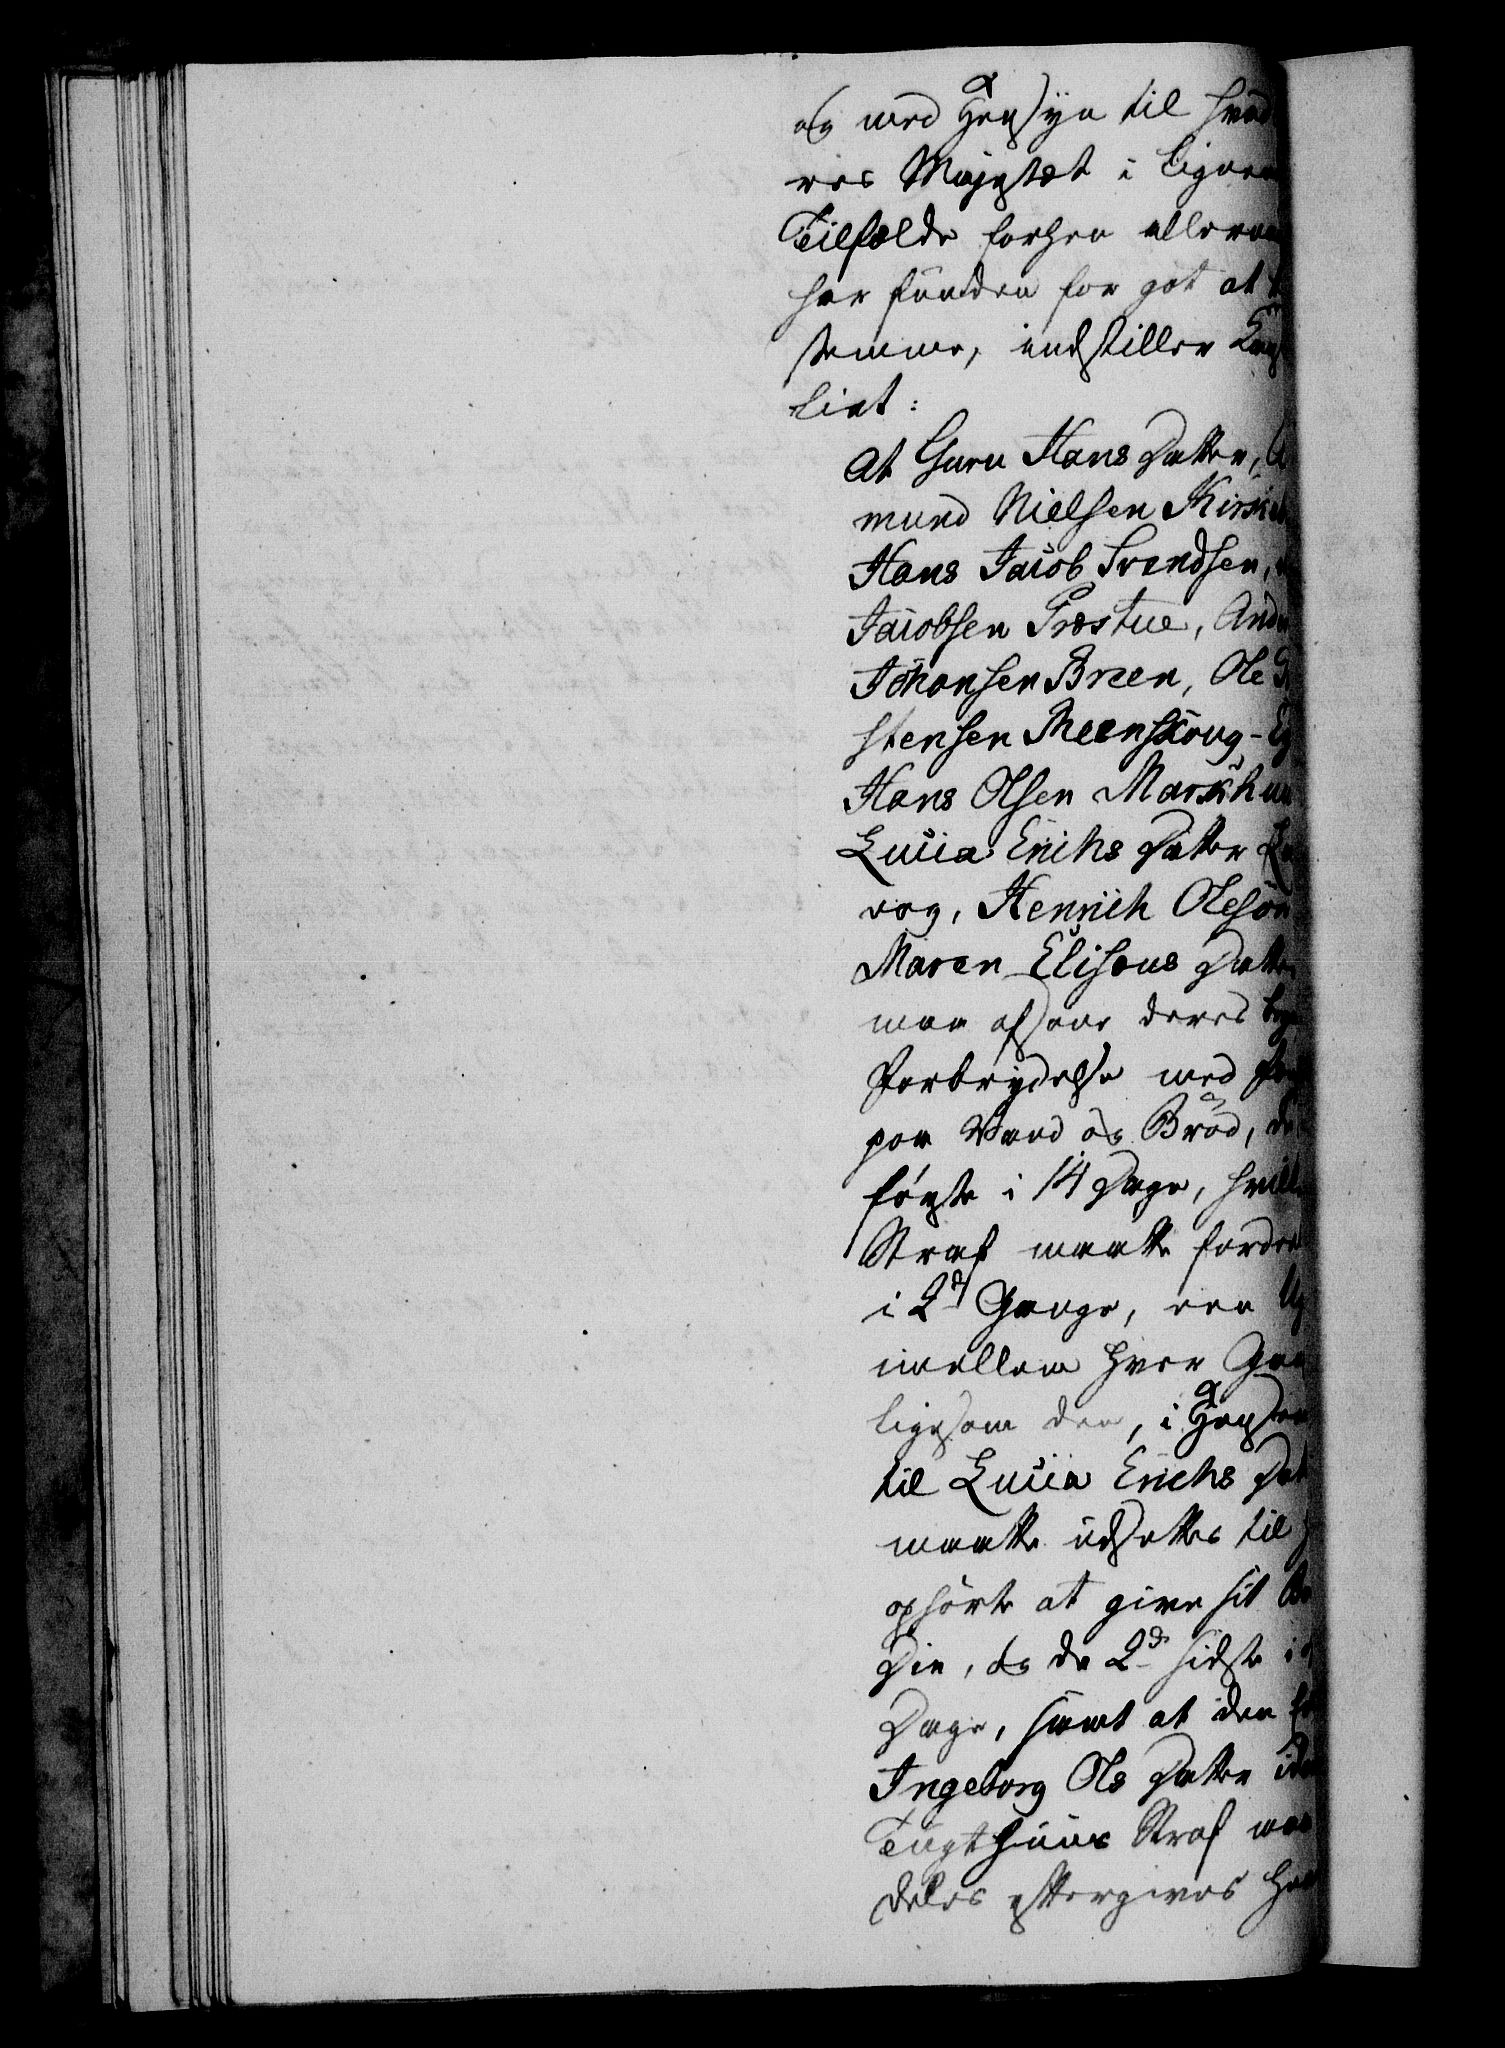 og med Hensyn til hvad
res Majestæt i lignen
Tilfælde forhen allern
har funden for got at
stemme, indstiller Coll
liet:
At Guru Hans Datter,
mund Nielsen Kirke
Hans Jacob Svendsen,
Jacobsen Præstue, And
Johansen Breen, Ole G
stensen Meenskoug-Eg
Hans Olsen Markhuu
Lucia Erichs Datter
vog, Henrich Olesøn
Maren Elisæus Datter
maa afsone deres beg
Forbrydelse med Fæng
paa Vand og Brød, de
første i 14 Dage, hvilke
Straf maatte fordeel
i 2de Gange, een Ug
imellem hver Gan
ligesom den, i Hensee
til Lucia Erichs Dat
maatte udsættes til
ophørte at give sit Ba
Die, og de 2de sidste i
Dage, samt at den
Ingeborg Ols Datter idø
Tugthuus Straf maa
deles eftergives hen